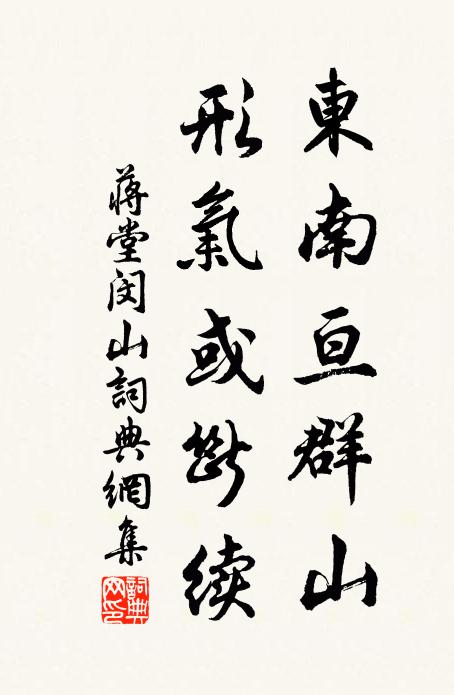 東南亘群山
形氣或斷续
蔣堂閔山詞典網集
詞典网印